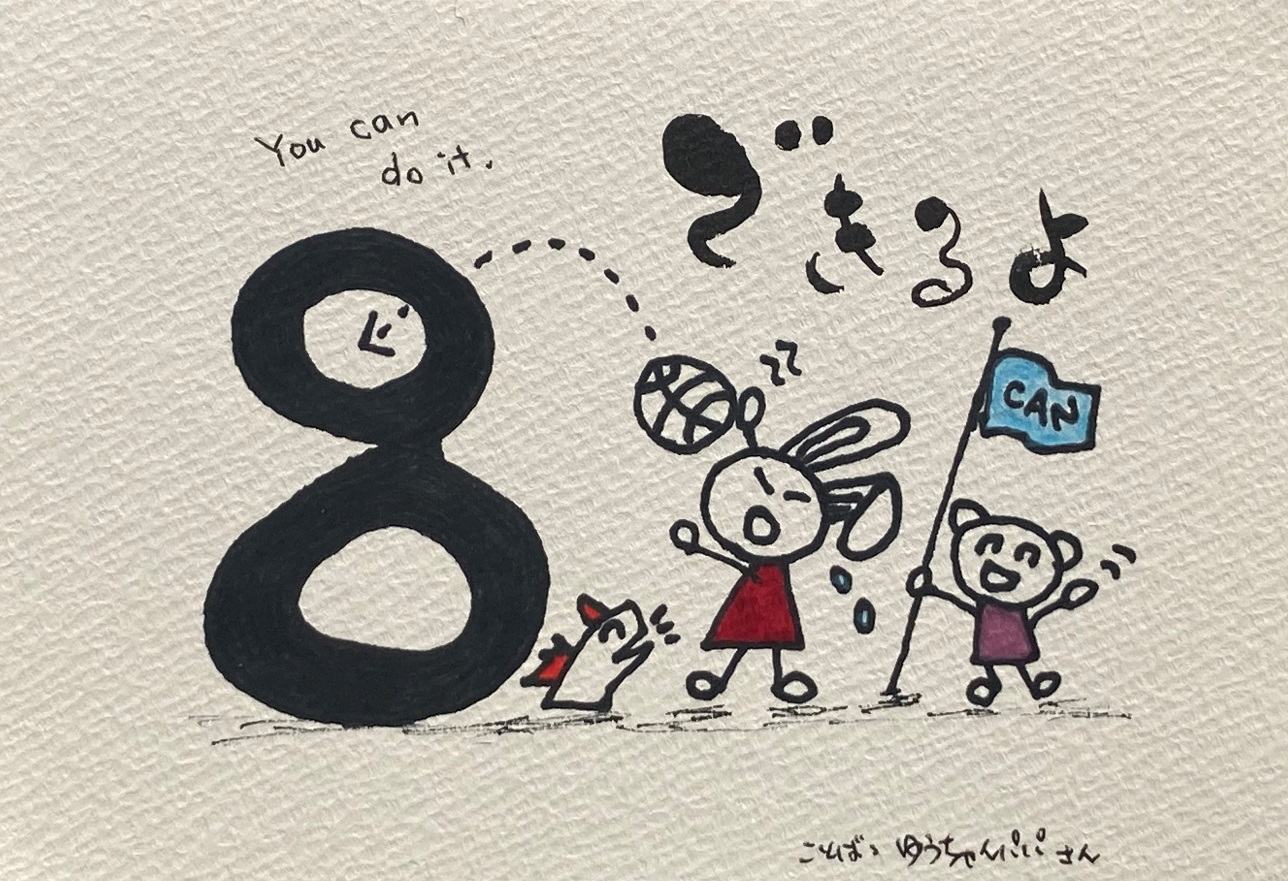 You can
do it.
できるよ
8
CAN
ことば: ゆうちゃんパパさん